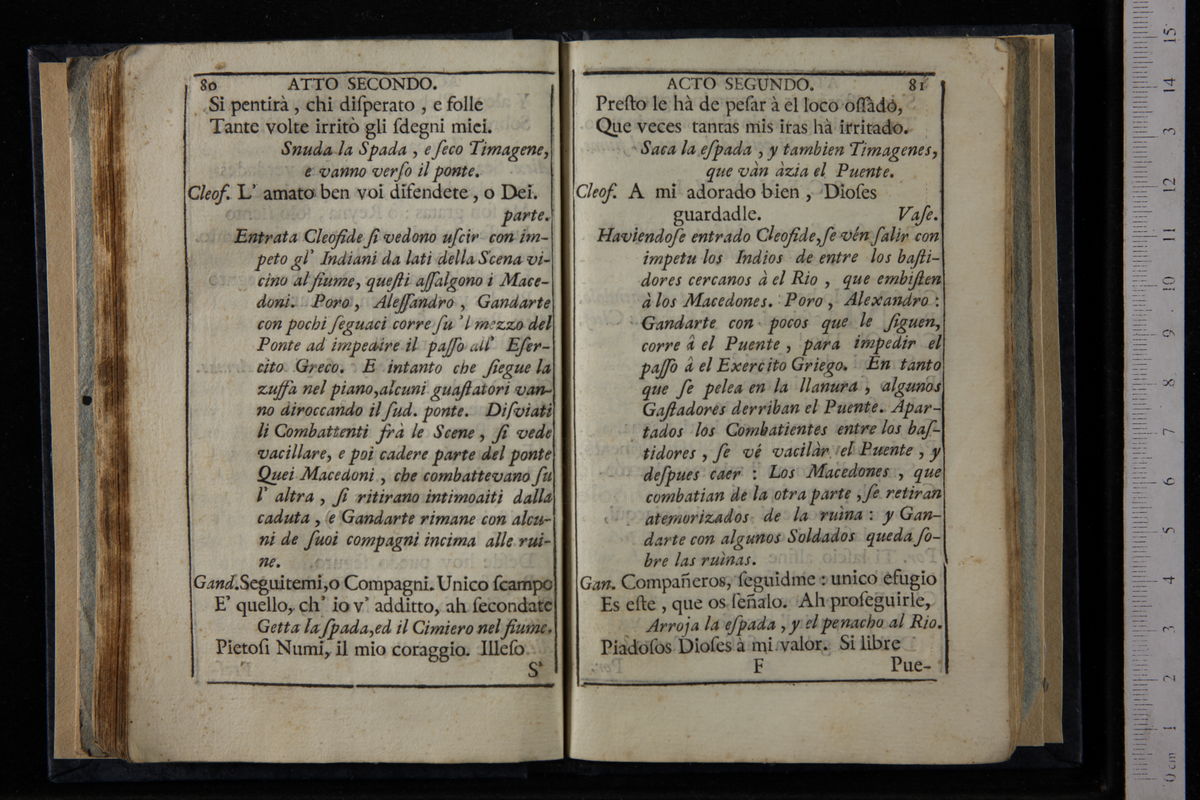 80 ATTO SECONDO.
Si pentirà, chi diſperato, e folle
Tante volte irritò gli ſdegni miei.
Snuda la Spada, e ſeco Timagene,
e vanno verſo il ponte.
Cleof. L' amato ben voi difendete, o Dei.
parte.
Entrata Cleofide ſi vedono uſcir con im-
peto gl' Indiani da lati della Scena vi-
cino al fiume, queſti aſſalgono i Mace-
doni. Poro, Aleſſandro, Gandarte
con pochi ſeguaci corre ſu 'l mezzo del
Ponte ad impedire il paſſo all' Eſer-
cito Greco. E intanto che ſiegue la
zuffa nel piano, alcuni guaſtatori van-
no diroccando il ſud. ponte. Diſviati
li Combattenti frà le Scene, ſi vede
vacillare, e poi cadere parte del ponte
Quei Macedoni, che combattevano ſu
l' altra, ſi ritirano intimoaiti dalla
caduta, e Gandarte rimane con alcu-
ni de ſuoi compagni incima alle rui-
ne.
Gand. Seguitemi, o Compagni. Unico ſcampo
E' quello, ch' io v' additto, ah ſecondate
Getta la ſpada, ed il Cimiero nel fiume.
Pietoſi Numi, il mio coraggio. Illeſo
S'
ACTO SEGUNDO. 81
Preſto le hà de peſar à el loco oſſado,
Que veces tantas mis iras hà irritado.
Saca la eſpada, y tambien Timagenes,
que vàn àzia el Puente.
Cleof. A mi adorado bien, Dioſes
guardadle. Vaſe.
Haviendoſe entrado Cleofide, ſe vén ſalir con
impetu los Indios de entre los baſti-
dores cercanos à el Rio, que embiſten
à los Macedones. Poro, Alexandro:
Gandarte con pocos que le ſiguen,
corre â el Puente, para impedir el
paſſo â el Exercito Griego. En tanto
que ſe pelea en la llanura, algunos
Gaſtadores derriban el Puente. Apar-
tados los Combatientes entre los baſ-
tidores, ſe vé vacilàr el Puente, y
deſpues caer: Los Macedones, que
combatian de la otra parte, ſe retiran
atemorizados de la ruìna: y Gan-
darte con algunos Soldados queda ſo-
bre las ruìnas.
Gan. Compañeros, ſeguidme: unico efugio
Es eſte, que os ſeñalo. Ah proſeguirle,
Arroja la eſpada, y el penacho al Rio.
Piadoſos Dioſes à mi valor. Si libre
F Pue-
15
14
13
12
11
10
9
8
7
6
5
4
3
2
1
0 cm